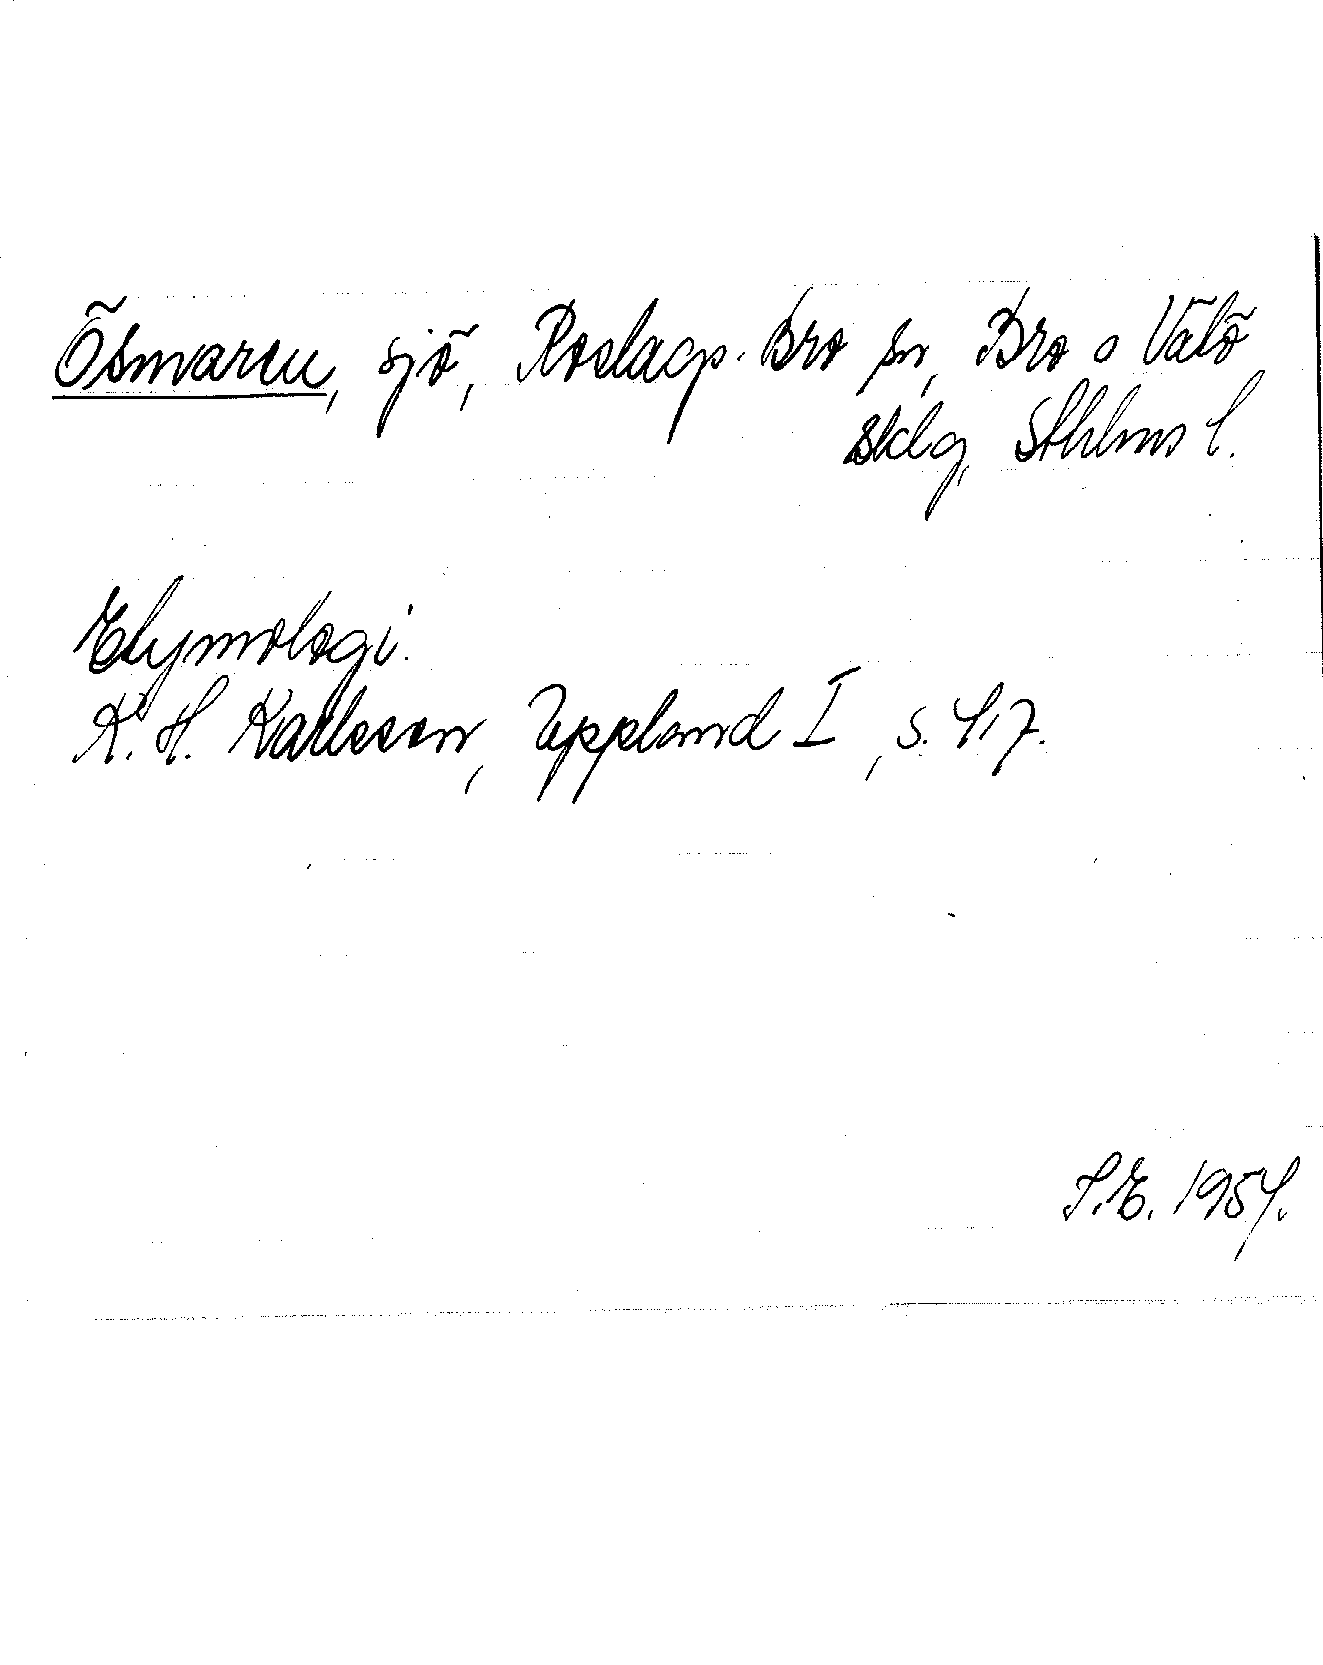 Ösmaren, sjö, Roslags-Bro sn, Bro o Vätö
sklg, Sthlms l.
Etymologi.
K. H. Karlsson, Uppland I, s. 417.
S.E. 1954.